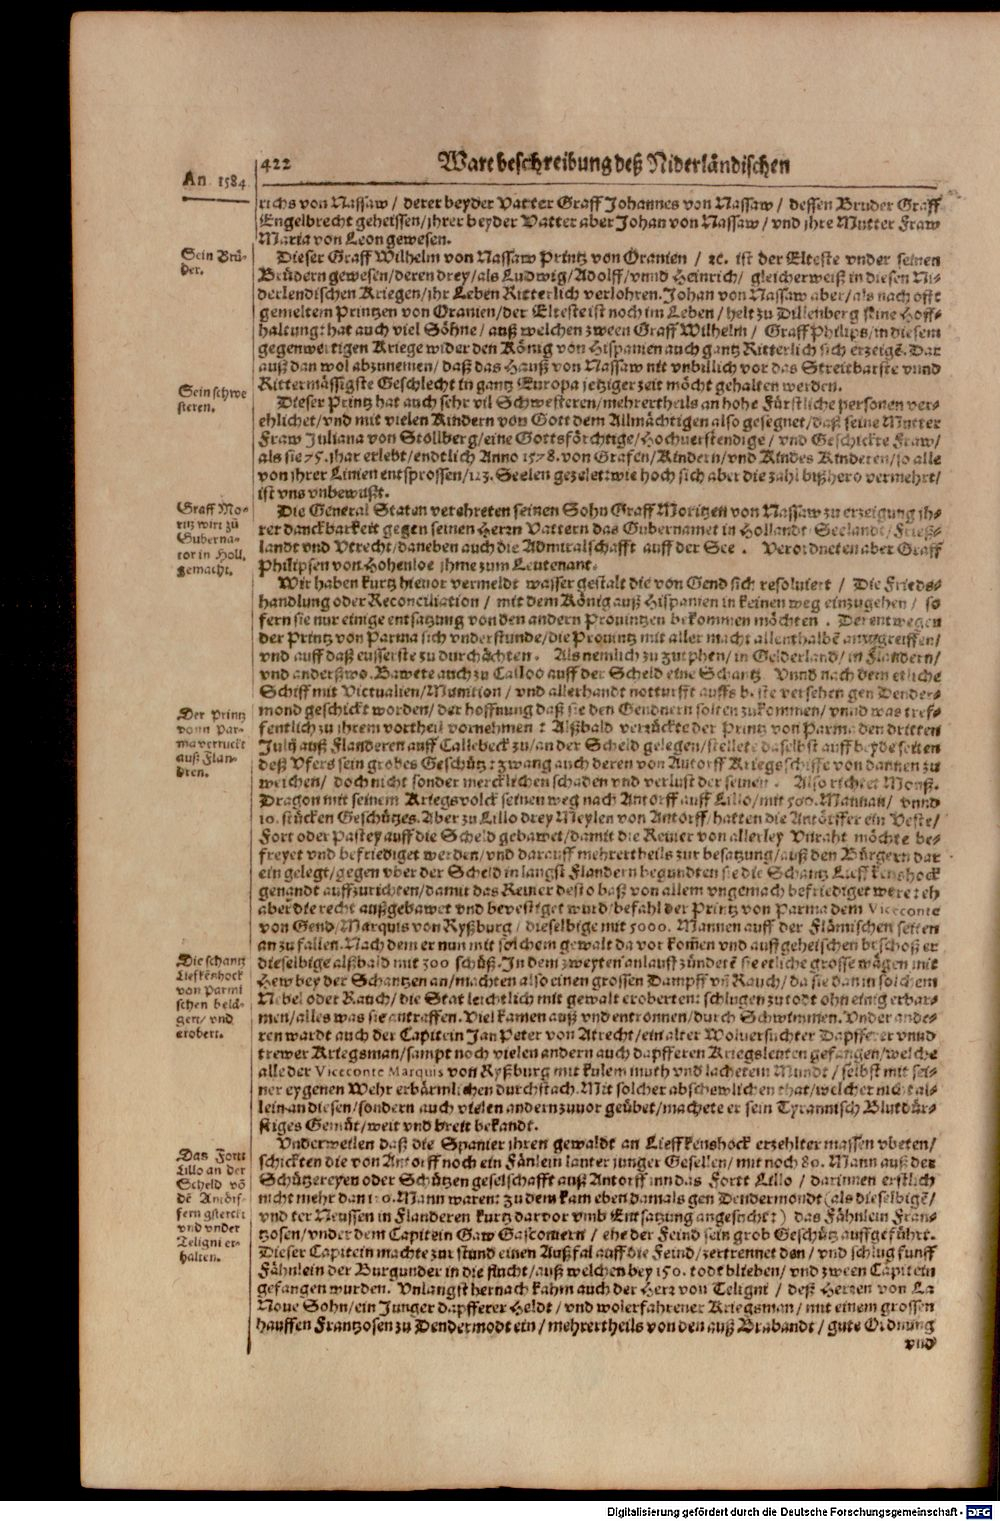 422 Ware beschreibung deß Niderländischen
An. 1584
richs von Nassaw / derer beyder Vatter Graff Johannes von Nassaw / dessen Bruder Graff
Engelbrecht geheissen / ihrer beyder Vatter aber Johan von Nassaw / vnd ihre Mutter Fraw
Maria von Leon gewesen.
Sein Brü-
der.
Dieser Graff Wilhelm von Nassaw Printz von Oranien / ꝛc. ist der Elteste vnder seinen
Brüdern gewesen / deren drey / als Ludwig / Adolff / vnnd Heinrich / gleicherweiß in diesen Ni-
derlendischen Kriegen / ihr Leben Ritterlich verlohren. Johan von Nassaw aber / als nach offt
gemeltem Printzen von Oranien / der Elteste ist noch im Leben / helt zu Dillenberg seine Hoff-
haltung: hat auch viel Söhne / auß welchen zween Graff Wilhelm / Graff Philips / in diesem
gegenwertigen Kriege wider den König von Hispanien auch gantz Ritterlich sich erzeigẽ. Dar
auß dan wol abzunemen / daß das Hauß von Nassaw nit vnbillich vor das Streitbarste vnnd
Rittermässigste Geschlecht in gantz Europa jetziger zeit möcht gehalten werden.
Sein schwe
steren.
Dieser Printz hat auch sehr vil Schwesteren / mehrertheils an hohe Fürstliche personen ver-
ehlichet / vnd mit vielen Kindern von Gott dem Allmächtigen also gesegnet / daß seine Mutter
Fraw Juliana von Stollberg / eine Gottsförchtige / Hochuerstendige / vnd Geschickte Fraw /
als sie 75. ihar erlebt / endtlich Anno 1578. von Grafen / Kindern / vnd Kindes Kinderen / so alle
von ihrer Linien entsprossen / 123. Seelen gezelet: wie hoch sich aber die zahl bißhero vermehrt /
ist vns vnbewust.
Graff Mo-
ritz wirt zů
Guberna-
tor in Holl.
gemacht.
Die General Staten verehreten seinen Sohn Graff Moritzen von Nassaw zu erzeigung ih-
rer danckbarkeit gegen seinen Herrn Vattern das Gubernamet in Hollandt Seelandt / Frieß-
landt vnd Vtrecht / daneben auch die Admiralschafft auff der See. Verordneten aber Graff
Philipsen von Hohenloe ihme zum Leutenant.
Wir haben kurtz hieuor vermeldt wasser gestalt die von Gend sich resoluiert / Die Frieds-
handlung oder Reconciliation / mit dem König auß Hispanien in keinen weg einzugehen / so
fern sie nur einige entsatzung von den andern Prouintzen bekommen möchten. Derentwegen
der Printz von Parma sich vnderstunde / die Prouintz mit aller macht allenthalbẽ anzugreiffen /
vnd auff daß eusserste zu durchächten. Als nemlich zu Zutphen / in Gelderland / in Flandern /
vnd anderßwo. Bawete auch zu Calloo auff der Scheld eine Schantz Vnnd nach dem etliche
Schiff mit Victualien / Munition / vnd allerhandt notturfft auffs beste versehen gen Dender-
mond geschickt worden / der hoffnung daß sie den Gendnern solten zukommen / vnnd was tref-
Der Printz
vonn Par-
ma verruckt
auß Flan-
dren.
fentlich zu ihrem vortheil vornehmen: Alßbald verzückte der Printz von Parma den dritten
Julij auß Flanderen auff Callebeck zu / an der Scheld gelegen / stellete daselbst auff beyde seiten
deß Vfers sein grobes Geschütz: zwang auch deren von Antorff Kriegsschiffe von dannen zu
weichen / doch nicht sonder mercklichen schaden vnd verlust der seinen. Also richtet Monß.
Dragon mit seinem Kriegsvolck seinen weg nach Antorff auff Lillo / mit 500. Mannan / vnnd
10. stücken Geschützes. Aber zu Lillo drey Meylen von Antorff / hatten die Antörffer ein Veste /
Fort oder Pastey auff die Scheld gebawet / damit die Reuier von allerley Vnraht möchte be-
freyet vnd befriediget werden / vnd darauff mehrertheils zur besatzung / auß den Bürgern dar
ein gelegt / gegen vber der Scheld in langst Flandern begundten sie die Schantz Lieffkenshock
genandt auffzurichten / damit das Reuier desto baß von allem vngemach befriediget were: eh
aber die recht außgebawet vnd bevestiget wurd / befahl der Printz von Parma dem Viceconte
von Gend / Marquis von Ryßburg / dieselbige mit 5000. Mannen auff der Flämischen seiten
an zu fallen. Nach dem er nun mit solchem gewalt da vor kom̃en vnd auffgeheischen beschoß er
Die schantz
Liefkenshock
von Parmi
schen belä-
gert / vnd
erobert.
dieselbige alßbald mit 300 schüß. In dem zweyten anlauff zündetẽ sie etliche grosse wägen mit
Hew bey der Schantzen an / machten also einen grossen Dampff vñ Rauch / da sie dan in solchem
Nebel oder Rauch / die Stat leichtlich mit gewalt eroberten: schlugen zu todt ohn einig erbar-
men / alles was sie antraffen. Viel kamen auß vnd entronnen / durch Schwimmen. Vnder ande-
ren wardt auch der Capitein Jan Peter von Atrecht / ein alter Wolversuchter Dapfferer vnnd
trewer Kriegsman / sampt noch vielen andern auch dapfferen Kriegsleuten gefangen / welche
alle der Viceconte Marquis von Ryßburg mit kulem muth vnd lachetem Mundt / selbst mit sei-
ner eygenen Wehr erbärmlichen durchstach. Mit solcher abschewlichen that / welcher nicht al-
lein an diesen / sondern auch vielen andern zuuor geübet / machete er sein Tyrannisch Blutdür-
stiges Gemüt / weit vnd breit bekandt.
Vnderweilen daß die Spanier ihren gewaldt an Lieffkenshock erzehlter massen vbeten /
Das Fortt
Lillo an der
Scheld võ
dẽ Antörf-
fern gsterckt
vnd vnder
Teligni er-
halten.
schickten die von Antorff noch ein Fänlein lauter junger Gesellen / mit noch 80. Mann auß der
Schützereyen oder Schützen geselschafft auß Antorff inn das Fortt Lillo / darinnen erstlich
nicht mehr dan 110. Mann waren: zu dem kam eben damals gen Dendermondt (als dieselbigẽ /
vnd ter Neussen in Flanderen kurtz darvor vmb Entsatzung angesucht:) das Fähnlein Fran-
tzosen / vnder dem Capitein Gaw Gasconiern / ehe der Feind sein grob Geschütz auffgeführt.
Dieser Capitein machte zur stund einen Außfal auff die Feind / zertrennet den / vnd schlug fünff
Fähnlein der Burgunder in die flucht / auß welchen bey 150. todt blieben / vnd zween Capitein
gefangen wurden. Vnlangst hernach kahm auch der Herr von Teligni / deß Herren von La
Noue Sohn / ein Junger dapfferer Heldt / vnd wolerfahrener Kriegsman / mit einem grossen
hauffen Frantzosen zu Dendermodt ein / mehrertheils von den auß Brabandt / gute Ordnung
vnd
Digitalisierung gefördert durch die Deutsche Forschungsgemeinschaft - DFG